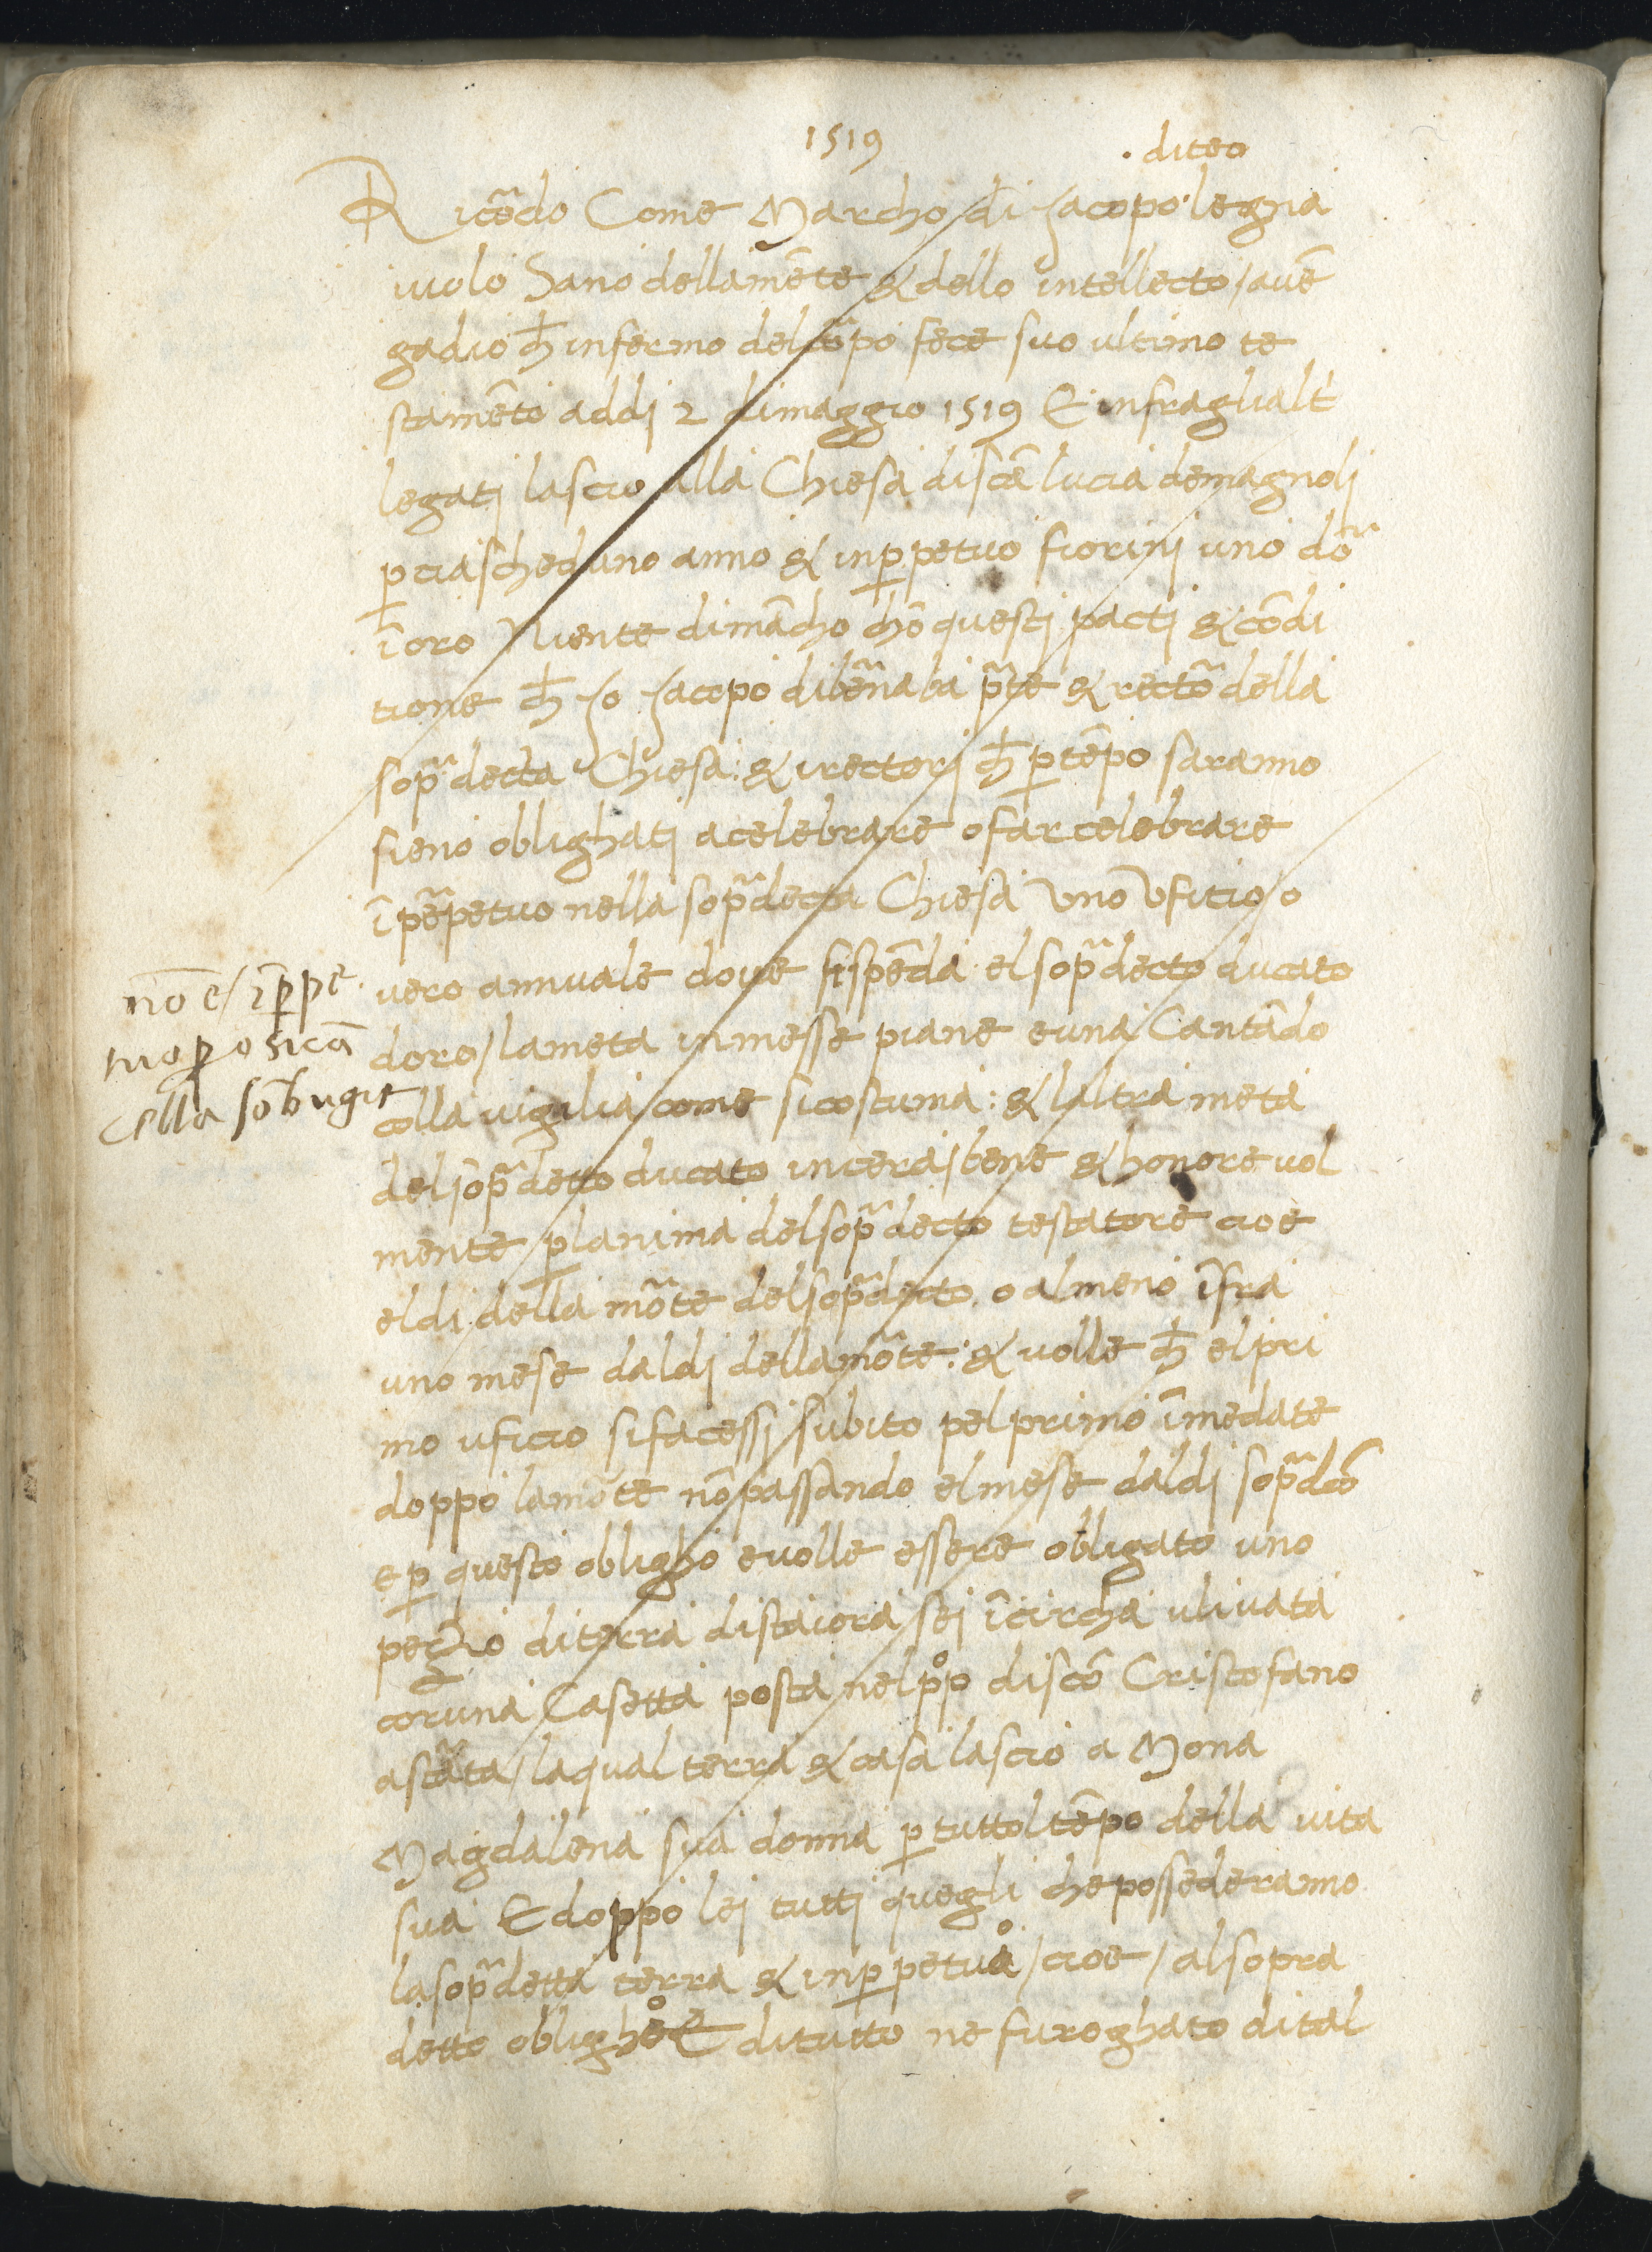 1519
· diteo
Ricõdo Come Marcho di Jacopo legnia
iuolo Sano dellamẽte & dello intellecto / auẽ
gadio ch̄ infermo delcõpo fece suo ultimo te
stamẽto addj 2 dimaggio 1519 E infraglialt̃
legatj lascio alla Chiesa discã lucia demagnolj
ꝑ ciascheduno anno & inꝑpetuo fiorinj uno do
ĩ oro Niente dimãcho chõ questj pactj & cõdi
tione ch̄ Jo Jacopo dibẽnaba pr̃te & rectõ della
sop̃ decta Chiesa: & irectorj ch̄ ꝑ tẽpo saranno
sieno oblighatj acelebrare ofarcelebrare
ĩ pẽpetuo nella sop̃decta Chiesa Vno Vficio / o
vero annuale dove sispẽda elsop̃decto ducato
doro / lameta inmesse piane euna Cantãdo
colla uigilia come sicostuma: & laltra meta
delsop̃detto ducato incera / bene & honoreuol
mente ꝑ lanima delsop̃decto testatore cioe
eldi della mõte delsop̃decto o almeno ĩfra
uno mese daldj dellamõte: & volle ch̄ elpri
mo uficio sifacessj subito pelprimo ĩmedate
doppo lamõte nõpassando elmese daldj sop̃dcõ
e ꝑ questo oblighò euolle essere obligato uno
pezzo diterra distaiora sej ĩcircha ulivata
coruna Casetta posta nelp°p° discõ Cristofano
astrãta / laqual terra & casa lascio a Mona
Magdalena sua donna ꝑ tuttoltẽpo della uita
sua E doppo lej tuttj queglj chepossederanno
lasop̃detta terra & inꝑpetuo / cioe / alsopra
detto oblighò E ditutto ne furoghato dital
nõ e / ĩꝑpe
tuo ꝑo sicã
cella sõ bugie